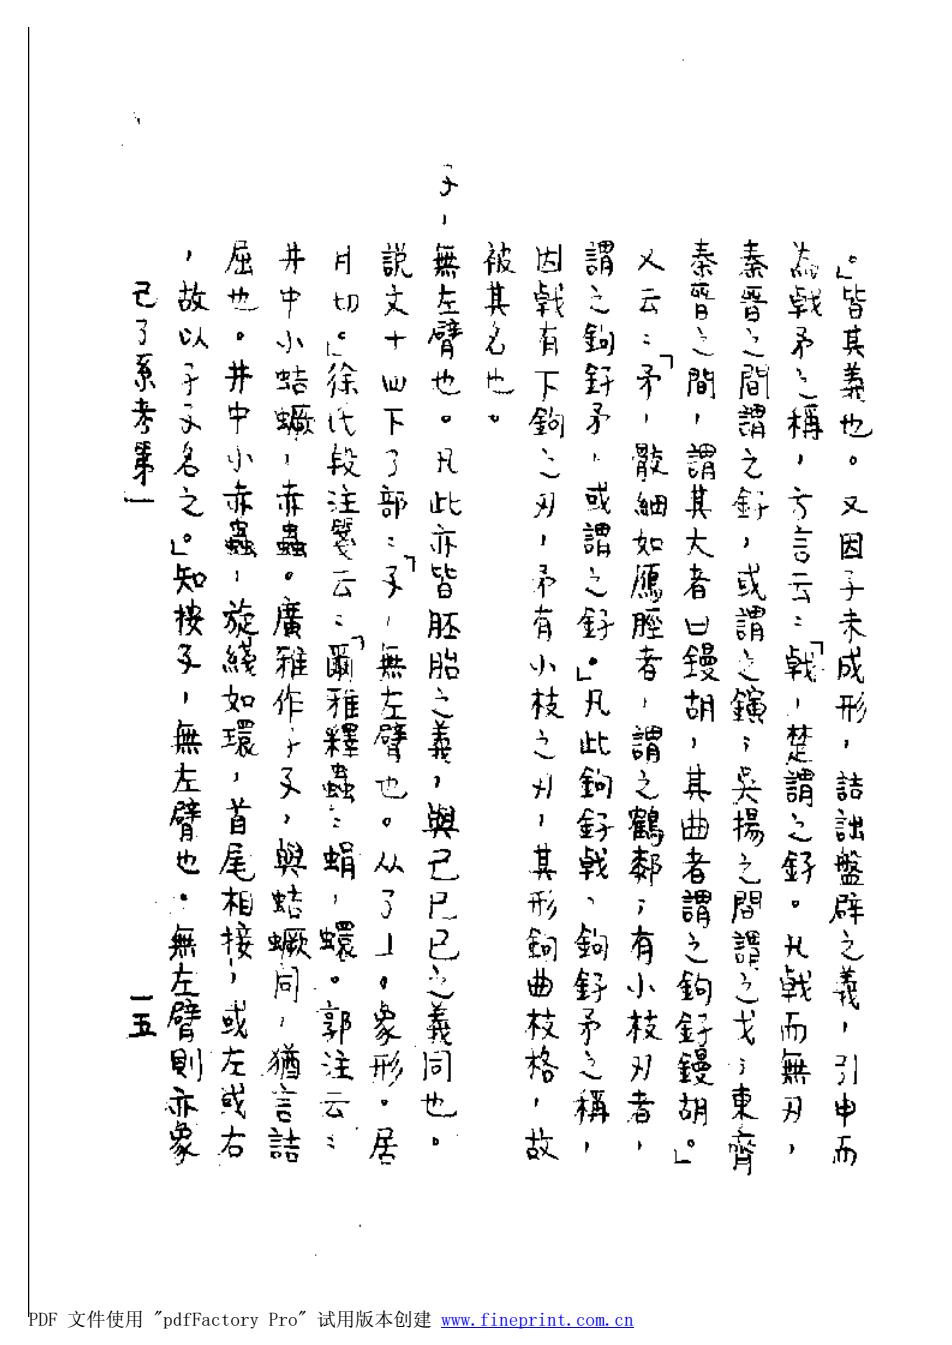 。」皆其義也。又因孑未成形，詰詘盤辟之義，引申而
為戟矛之稱，方言云：「戟，楚謂之釨。凡戟而無刃，
秦晉之間謂之釨，或謂之鏔；吳揚之間謂之戈；東齊
秦晉之間，謂其大者曰鏝胡，其曲者謂之鉤釨鏝胡。」
又云：「矛，骹細如鴈脛者，謂之鶴厀；有小枝刃者，
謂之鉤釨矛，或謂之釨。」凡此鉤釨戟、鉤釨矛之稱，
因戟有下鉤之刃，矛有小枝之刃，其形鉤曲枝格，故
被其名也。
孓，無左臂也。凡此亦皆胚胎之義，與己巳已之義同也。
說文十四下了部：「孓，無左臂也。从了㇄。象形。居
月切。」徐氏段注箋云：「爾雅釋蟲：蜎，蠉。郭注云：
井中小蛣蟩，赤蟲。廣雅作孑孓，與蛣蟩同，猶言詰
屈也。井中小赤蟲，旋繞如環，首尾相接，或左或右
，故以孑孓名之。」知按孓，無左臂也。無左臂則亦象
己了系考第一
一五
PDF 文件使用 "pdfFactory Pro" 试用版本创建 www.fineprint.com.cn